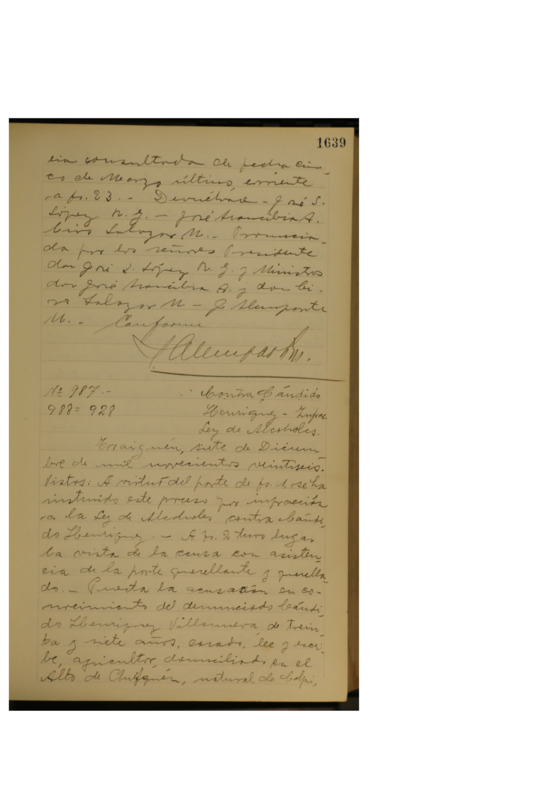 1639
cia consultada de fecha cin-
co de Marzo último, corriente
a fs. 23. - Devuélvase - José S.
López R. G. - José Arancibia A.
Ciro Salazar M. - Pronuncia-
da por los señores Presidente
don José S. López R. G. y Ministros
don José Arancibia A. y don Ci-
ro Salazar M - J Alemparte
M. - Conforme
JAlemparte M.
Nº 987.- Contra Cándido
988= 928 Henriquez - Infrac.
Ley de Alcoholes.
Traiguén, siete de Diciem
bre de mil novecientos veintiseis.
Vistos: A virtud del parte de fs. 1 se ha
instruido este proceso por infracción
a la Ley de Alcoholes contra Cándi-
do Henriquez. - A fs. 2 tuvo lugar
la vista de la causa con asisten-
cia de la parte querellante y querella-
do. - Puesta la acusación en co-
nocimiento del denunciado Cándi-
do Henriquez Villanueva de trein-
ta y siete años, casado, lee y escri-
be, agricultor, domiciliado en el
Alto de natural de